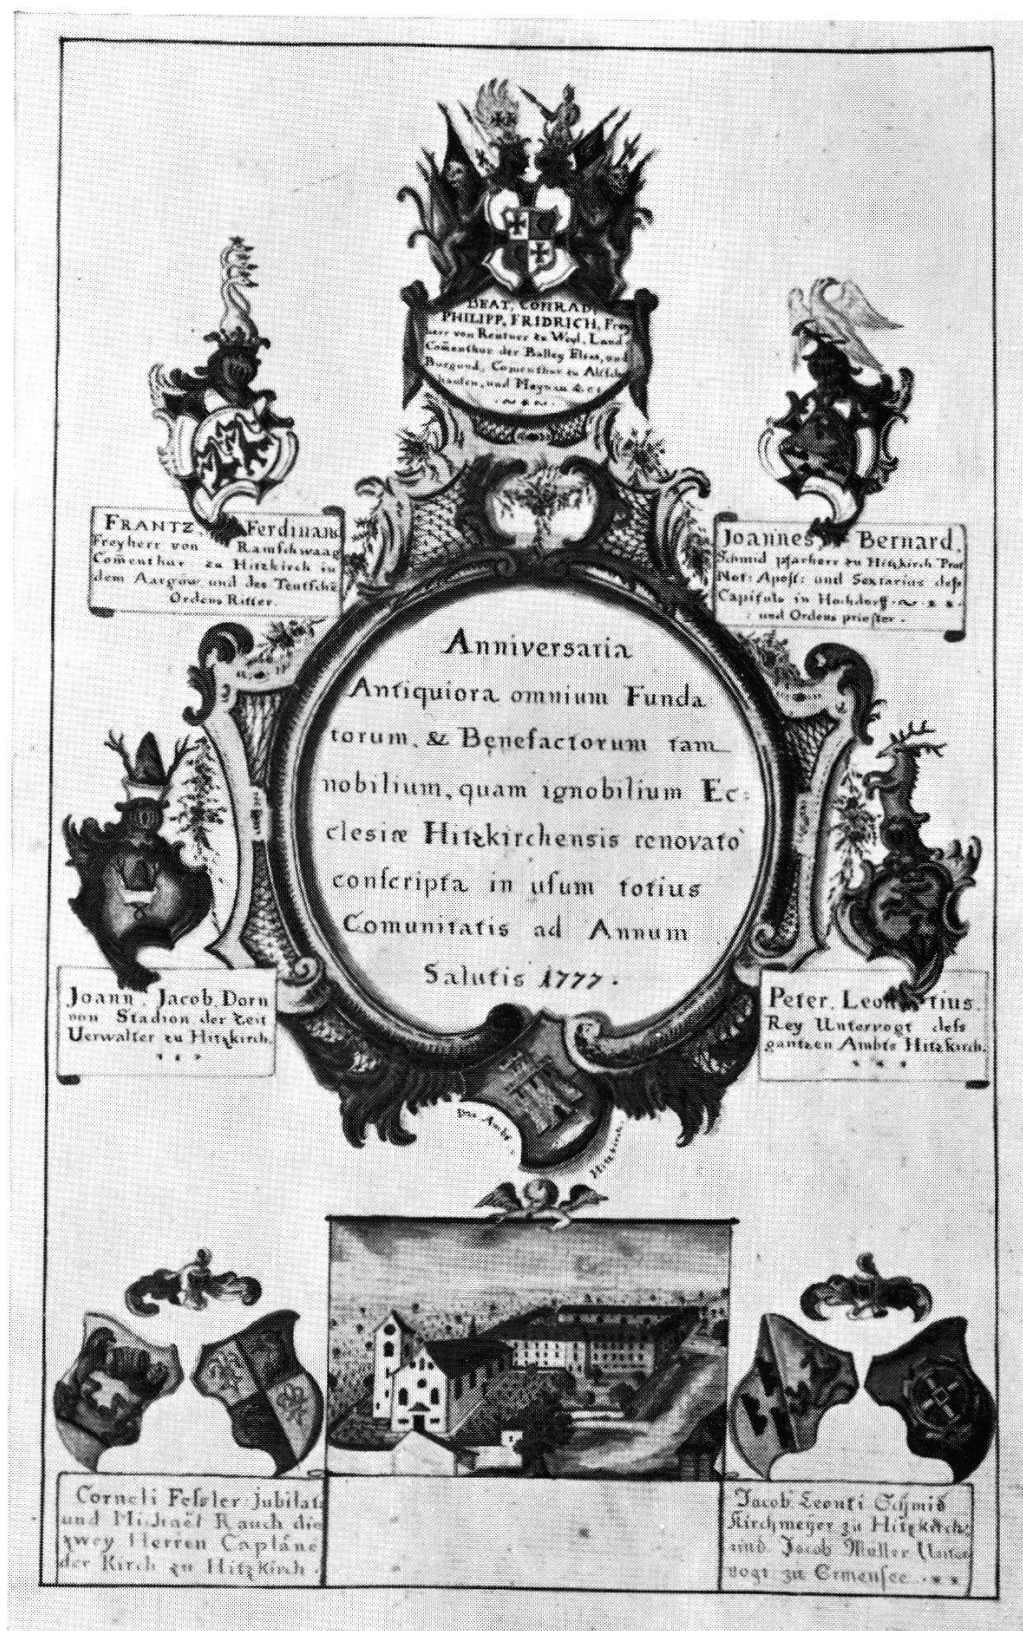 BEAT, CONRAD,
PHILIPP, FRIDRICH, Frey
herr von Reutner zu Weyl, Land
Com̄enthur der Balley Elsas, und
Burgund, Com̄enthur zu Altsch
hausen, und Meynau &c
FRANTZ, Ferdinand
Freyherr von Ramschwaag
Com̄enthur zu Hitzkirch in
dem Aargow und des Teutschē
Ordens Ritter.
Joannes Bernard,
Schmid pfarherr zu Hitzkirch Prot
Not: Apost: und Sextarius deſs
Capituls in Hochdorff
und Ordens prieſter.
Anniversaria
Antiquiora omnium Funda
torum, & Benefactorum tam
nobilium, quam ignobilium Ec:
clesiæ Hitzkirchensis renovato
conſcripta in uſum totius
Comunitatis ad Annum
Salutis 1777.
Joann. Jacob. Dorn
von Stadion der Zeit
Verwalter zu Hitzkirch.
Peter. Leontius.
Rey Untervogt deſs
gantzen Ambts Hitzkirch.
Das Ambt
Hitzkirch.
Corneli Feſsler jubilat
und Michaël Rauch die
zwey Herren Caplāne
der Kirch zu Hitzkirch.
Jacob Leonti Schmid
Kirchmeyer zu Hitzkirch,
und Jacob Muller Unter
vogt zu Ermenſee.